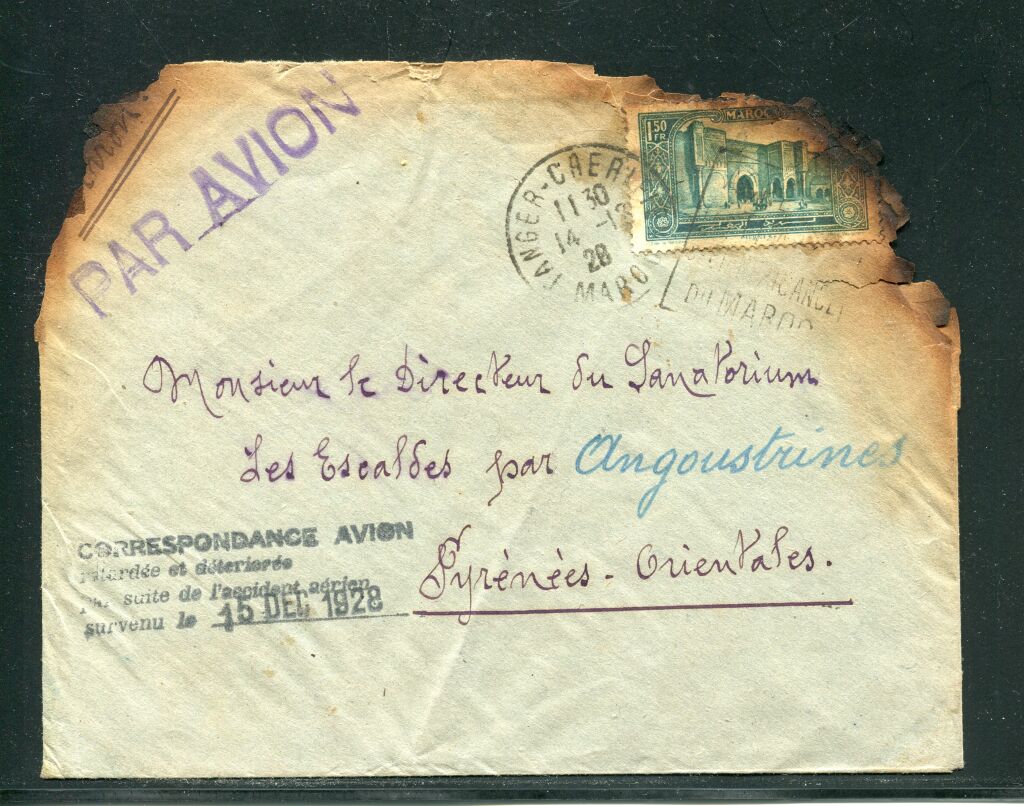 PAR AVION
MAROC
1,50
FR
TANGER-CHER
11 30
14 -12
28
MARO
DU MAROC
Monsieur le Directeur du Sanatorium
Les Escaldes par Angoustrines
Pyrénées-Orientales.
CORRESPONDANCE AVION
retardée et déteriorée
Par suite de l'accident aérien
survenu le 15 DEC 1928